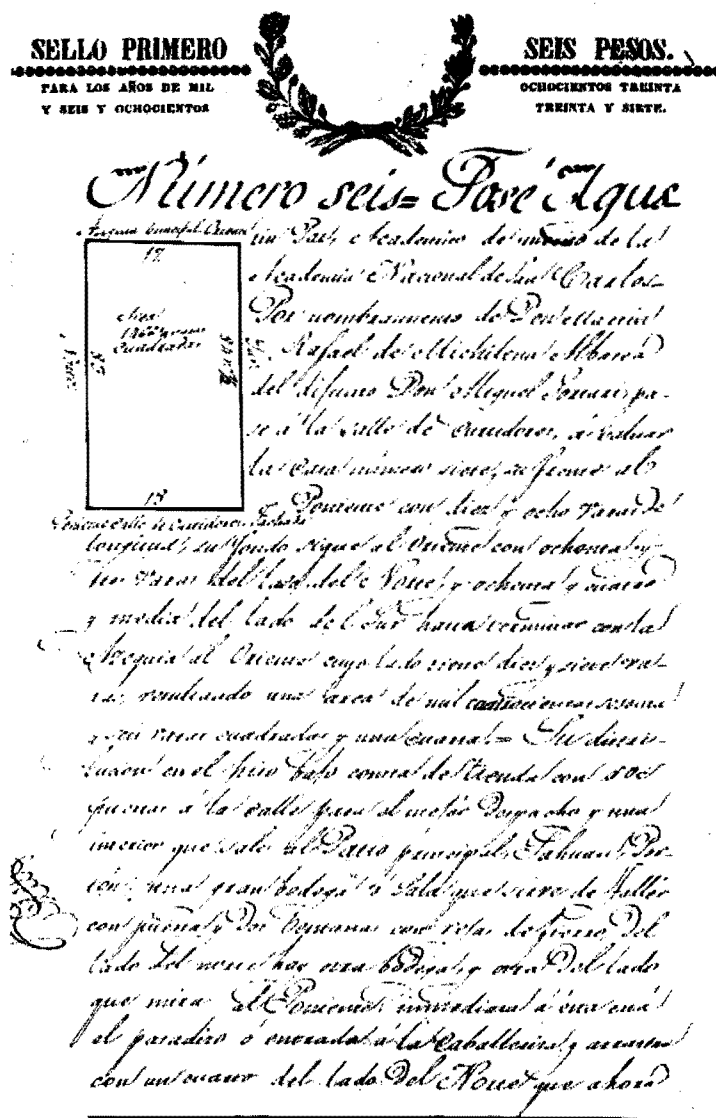 SELLO PRIMERO
PARA LOS AÑOS DE MIL
Y SEIS Y OCHOCIENTOS
SEIS PESOS.
OCHOCIENTOS TREINTA
TREINTA Y SIETE.
Número seis= José Agus
tin Paz, Academico de merito de la
Academia Nacional de San Carlos
Por nombramiento de
Rafael de Michilena Albacea
del difunto Don Miguel pa-
se á la calle de á valuar
la casa número siete, su frente al
Poniente con diez y ocho varas de
longitud, su fondo sigue al Oriente con ochenta y
tres varas del lado del Norte, y ochenta y cuatro
y media del lado del Sur hasta terminar con la
Acequia al Oriente cuyo lado tiene diez y siete va-
ras, resultando una area de mil cuatrocientas sesenta
y seis varas cuadradas y una cuarta= Su distri-
bucion en el piso bajo consta de tienda con dos
puertas á la calle para el mejor despacho y una
interior que sale al Patio principal, Zahuan, Por-
tón, una gran bodega ó Sala que sirve de Taller
con puerta y dos Ventanas con rejas de fierro, Del
lado del norte hay otra bodega, y otra del lado
que mira al Poniente, inmediata á esta está
el paradizo ó entrada á la Caballeriza,
con un cuarto del lado del Norte que ahora
17
Area
cuadradas
18